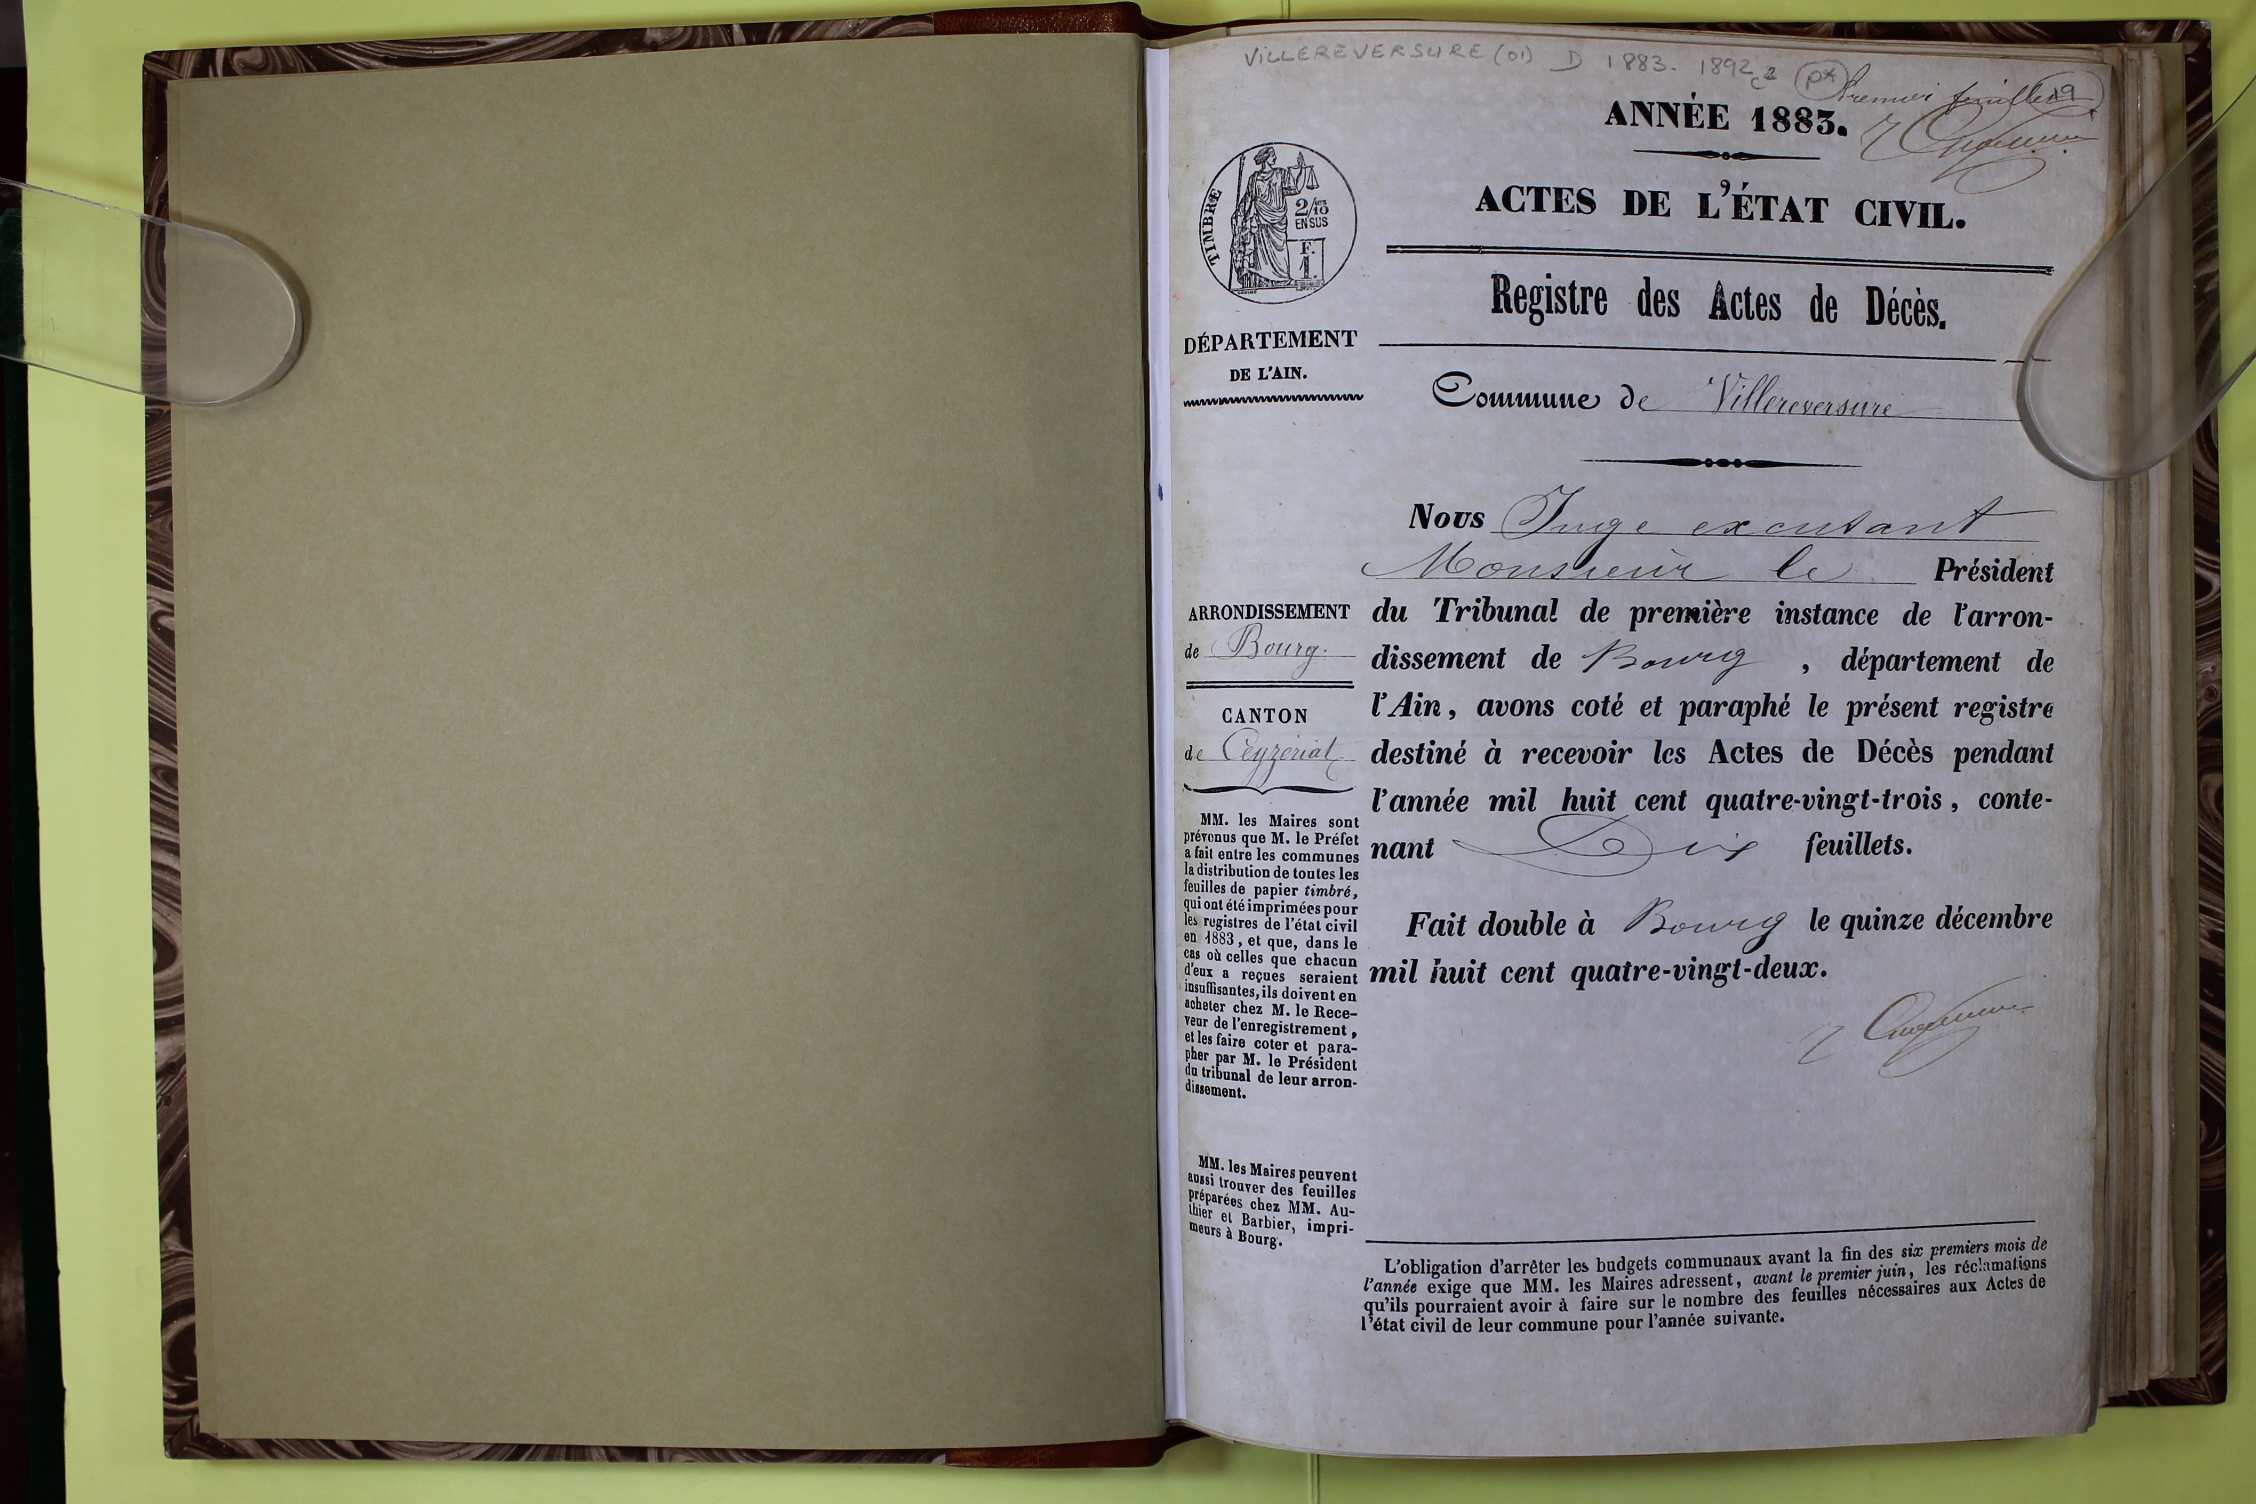 VILLEREVERSURE (01) D 1883. 1892
Premier feuillet 19
ANNÉE 1883.
ACTES DE L'ÉTAT CIVIL.
TIMBRE
2/10
EN SUS
F.
1.
Registre des Actes de Décès.
DÉPARTEMENT
DE L'AIN.
Commune de Villereversure
Nous Juge excusant
Monsieur le Président
du Tribunal de première instance de l'arron-
dissement de Bourg , département de
l'Ain, avons coté et paraphé le présent registre
destiné à recevoir les Actes de Décès pendant
l'année mil huit cent quatre-vingt-trois, conte-
nant Dix feuillets.
Fait double à Bourg le quinze décembre
mil huit cent quatre-vingt-deux.
ARRONDISSEMENT
de Bourg.
CANTON
de Ceyzériat
MM. les Maires sont
prévenus que M. le Préfet
a fait entre les communes
la distribution de toutes les
feuilles de papier timbré,
qui ont été imprimées pour
les registres de l'état civil
en 1883, et que, dans le
cas où celles que chacun
d'eux a reçues seraient
insuffisantes, ils doivent en
acheter chez M. le Rece-
veur de l'enregistrement,
et les faire coter et para-
pher par M. le Président
du tribunal de leur arron-
dissement.
MM. les Maires peuvent
aussi trouver des feuilles
préparées chez MM. Au-
thier et Barbier, impri-
meurs à Bourg.
L'obligation d'arrêter les budgets communaux avant la fin des six premiers mois de
l'année exige que MM. les Maires adressent, avant le premier juin, les réclamations
qu'ils pourraient avoir à faire sur le nombre des feuilles nécessaires aux Actes de
l'état civil de leur commune pour l'année suivante.